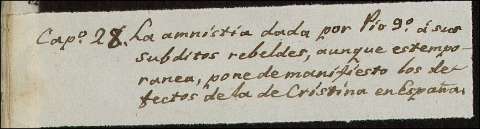 Capo. 28. La amnistia dada por Pio 9o. á sus
subditos rebeldes, aunque estempo-
ranea, pone de manifiesto los de-
fectos de la de Cristina en España.